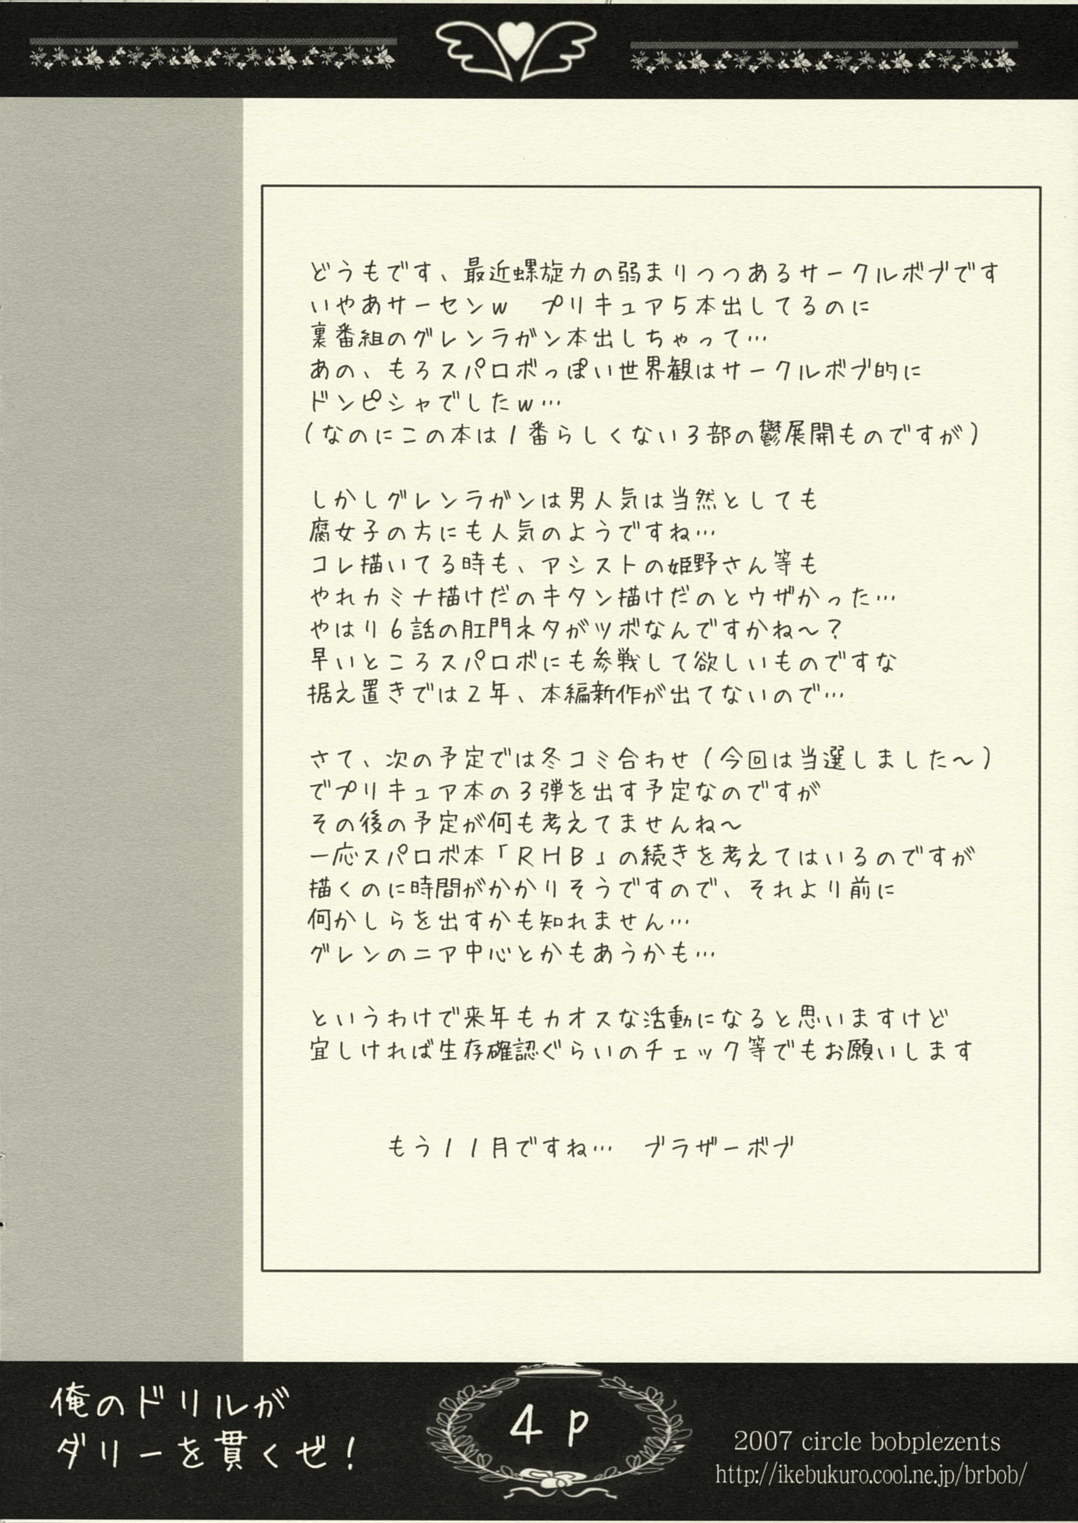 どうもです、最近螺旋力の弱まりつつあるサークルボブです
いやあサーセンｗ　プリキュア５本出してるのに
裏番組のグレンラガン本出しちゃって…
あの、もろスパロボっぽい世界観はサークルボブ的に
ドンピシャでしたｗ…
（なのにこの本は１番らしくない３部の鬱展開ものですが）
しかしグレンラガンは男人気は当然としても
腐女子の方にも人気のようですね…
コレ描いてる時も、アシストの姫野さん等も
やれカミナ描けだのキタン描けだのとウザかった…
やはり６話の肛門ネタがツボなんですかね～？
早いところスパロボにも参戦して欲しいものですな
据え置きでは２年、本編新作が出てないので…
さて、次の予定では冬コミ合わせ（今回は当選しました～）
でプリキュア本の３弾を出す予定なのですが
その後の予定が何も考えてませんね～
一応スパロボ本「ＲＨＢ」の続きを考えてはいるのですが
描くのに時間がかかりそうですので、それより前に
何かしらを出すかも知れません…
グレンのニア中心とかもあうかも…
というわけで来年もカオスな活動になると思いますけど
宜しければ生存確認ぐらいのチェック等でもお願いします
もう１１月ですね…　ブラザーボブ
俺のドリルが
ダリーを貫くぜ！
4 p
2007 circle bobplezents
http://ikebukuro.cool.ne.jp/brbob/